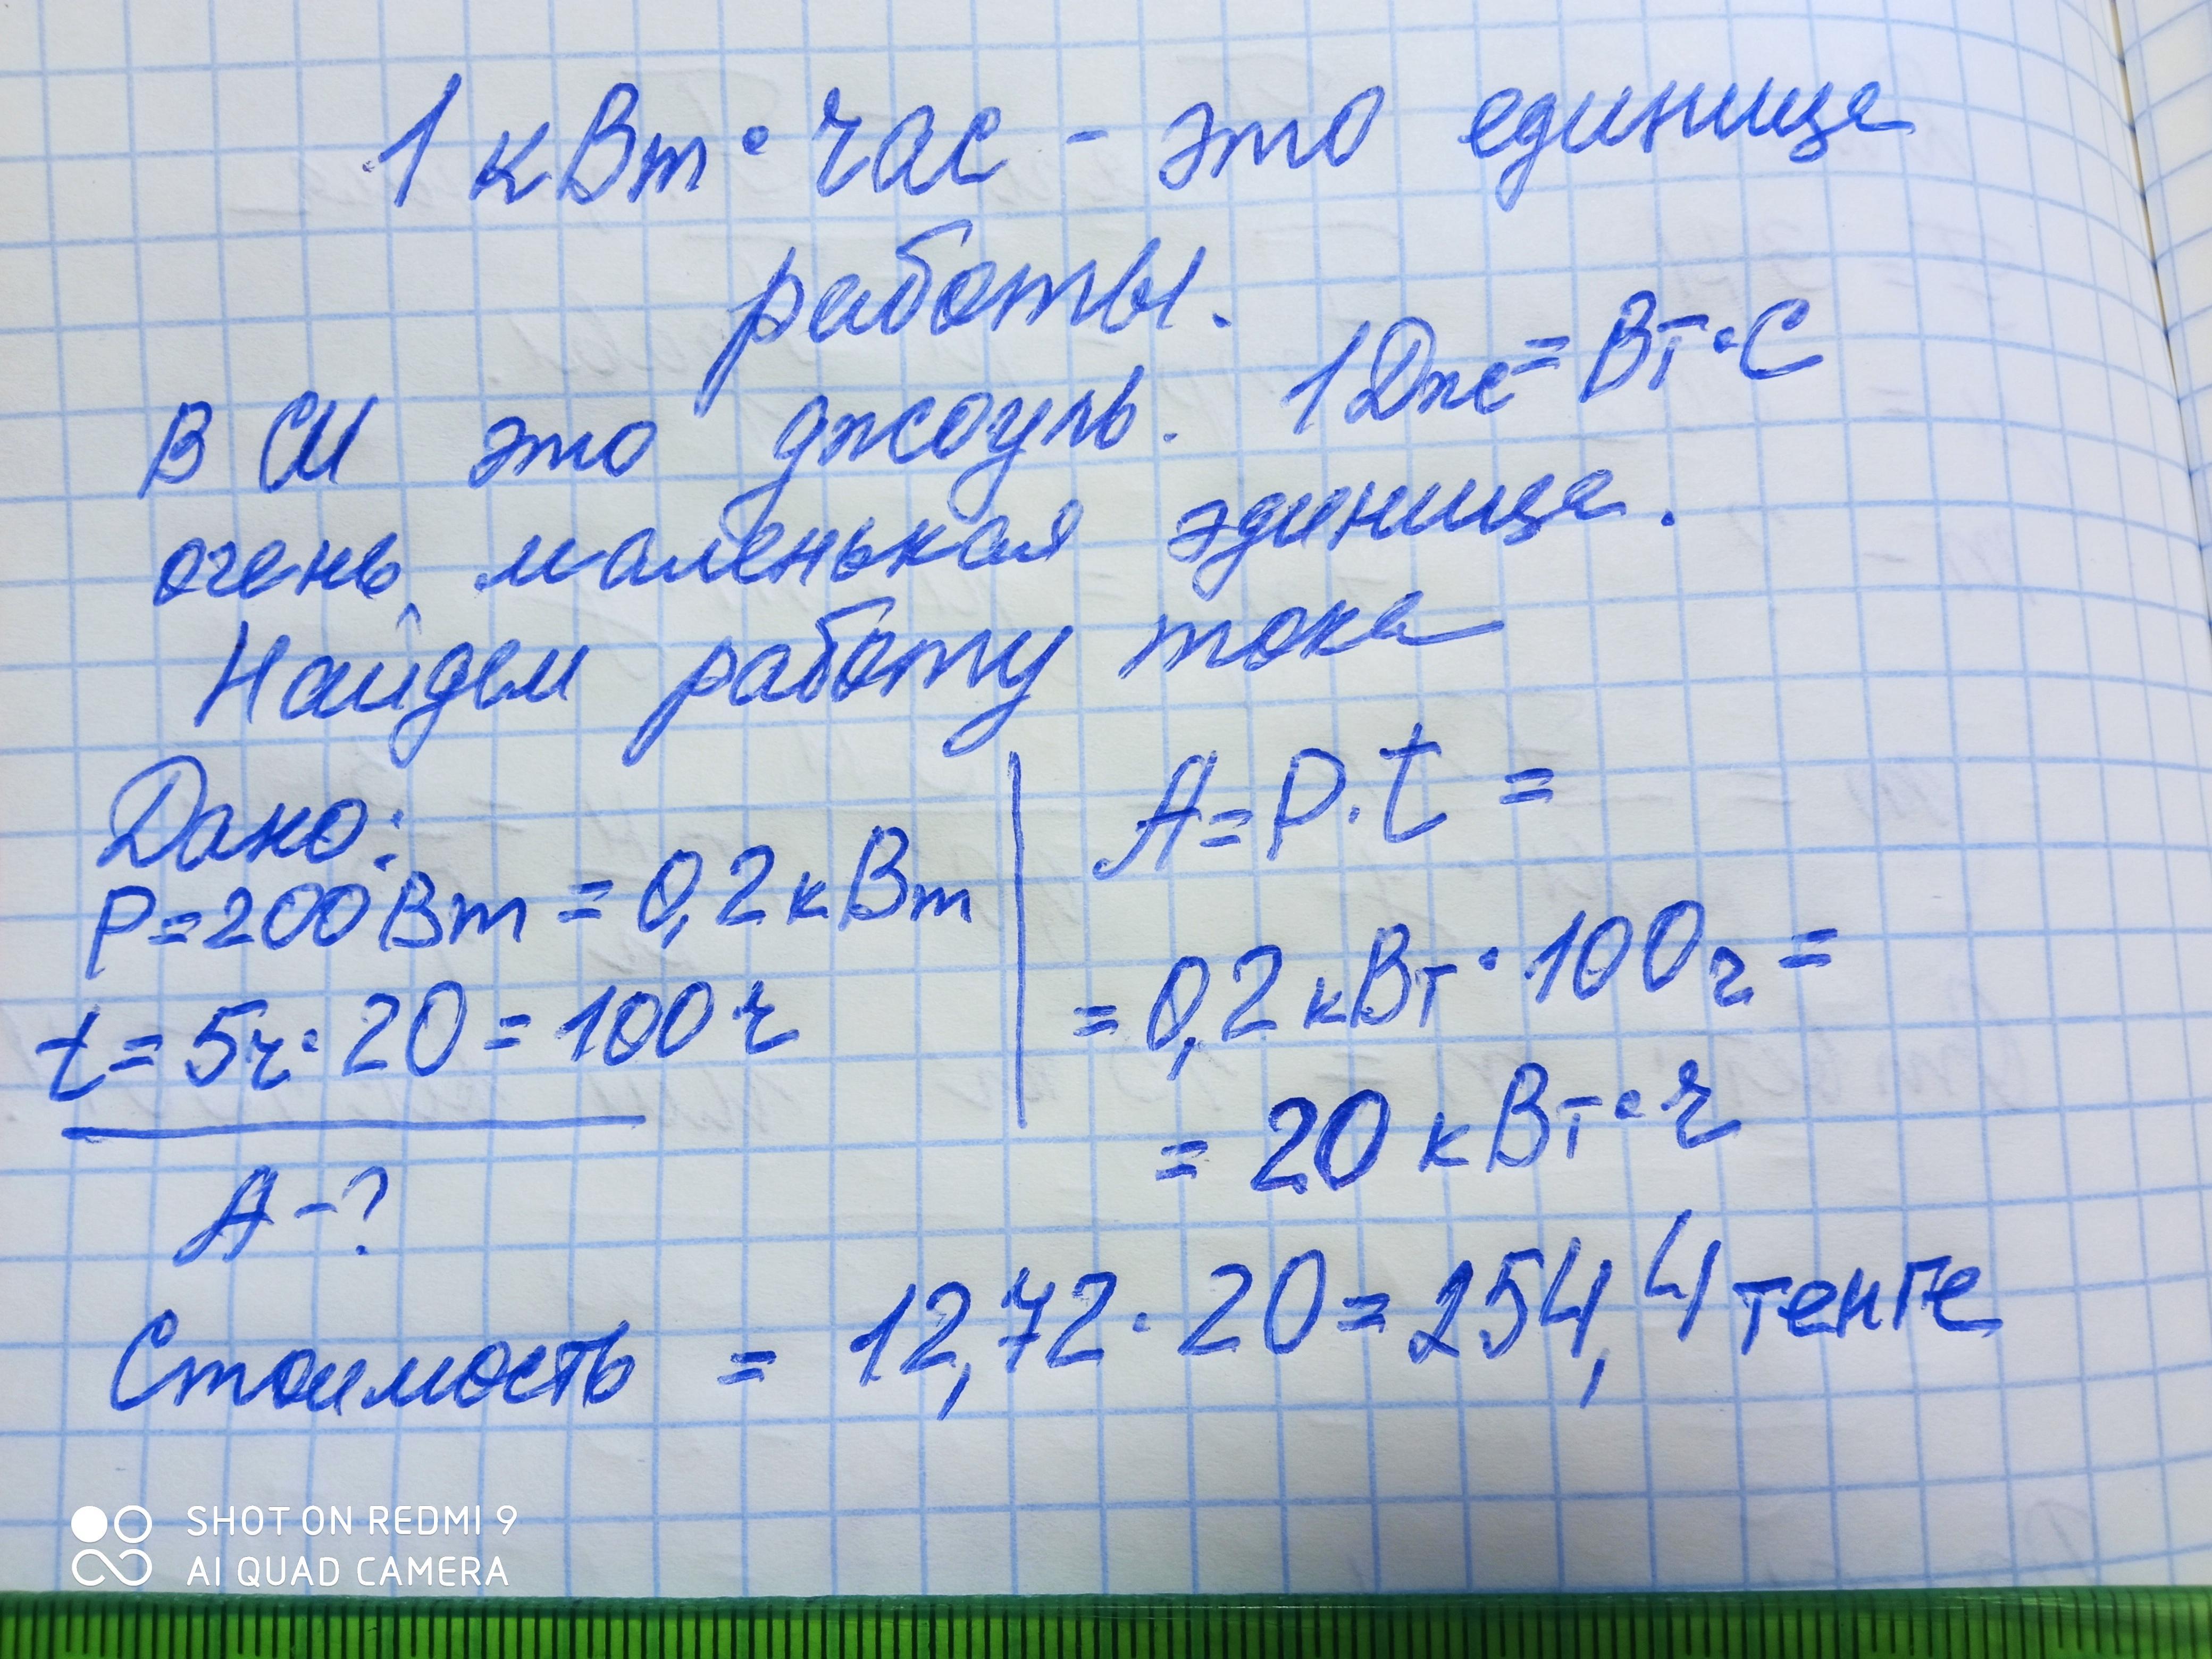 1 кВт · час - это единица
работы.
В СИ это джоуль. 1 Дж = Вт·С
очень маленькая эдиница.
Найдем работу тока
Дано:
P=200 Вт = 0,2 кВт
t = 5ч · 20 = 100 ч
A - ?
A = P · t =
= 0,2 кВт · 100 ч =
= 20 кВт · ч
Стоимость = 12,72 · 20 = 254,4 тенге
SHOT ON REDMI 9
AI QUAD CAMERA